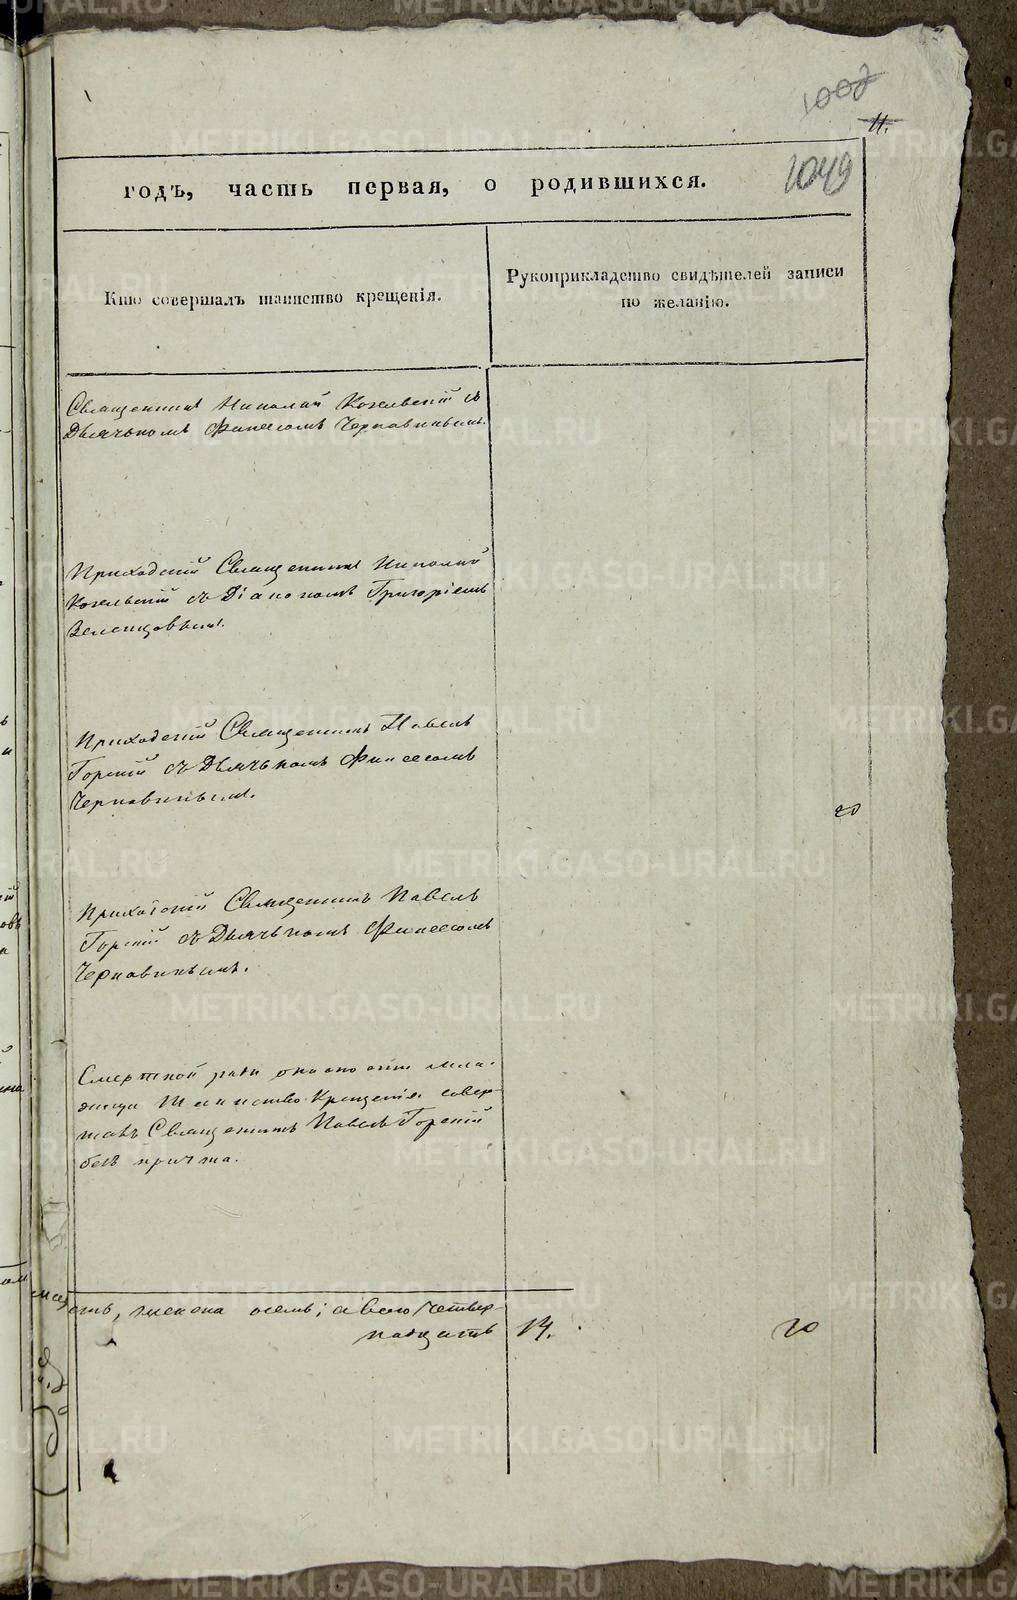 1002
11.
1049
годъ, часть первая, о родившихся.
Кто совершалъ таинство крещенія.
Рукоприкладство свидѣтелей записи
по желанію.
Священникъ Николай Козельскій съ
Дьячькомъ Финеесомъ Чернавинымъ.
Приходскій Священникъ Николай
Козельскій съ Діакономъ Григоріемъ
Зеленцовымъ.
Приходскій Священникъ Павелъ
Горскій съ Дьячькомъ Финеесомъ
Чернавинымъ.
20
Приходскій Священникъ Павелъ
Горскій съ Дьячькомъ Финеесомъ
Чернавинымъ.
Смертной ради опасности мла-
денца Таинство Крещенія совер-
шалъ Священникъ Павелъ Горскій
безъ причта.
есть, женска осемь; а всего четыр-
надцать 14. 20
METRIKI.GASO-URAL.RU